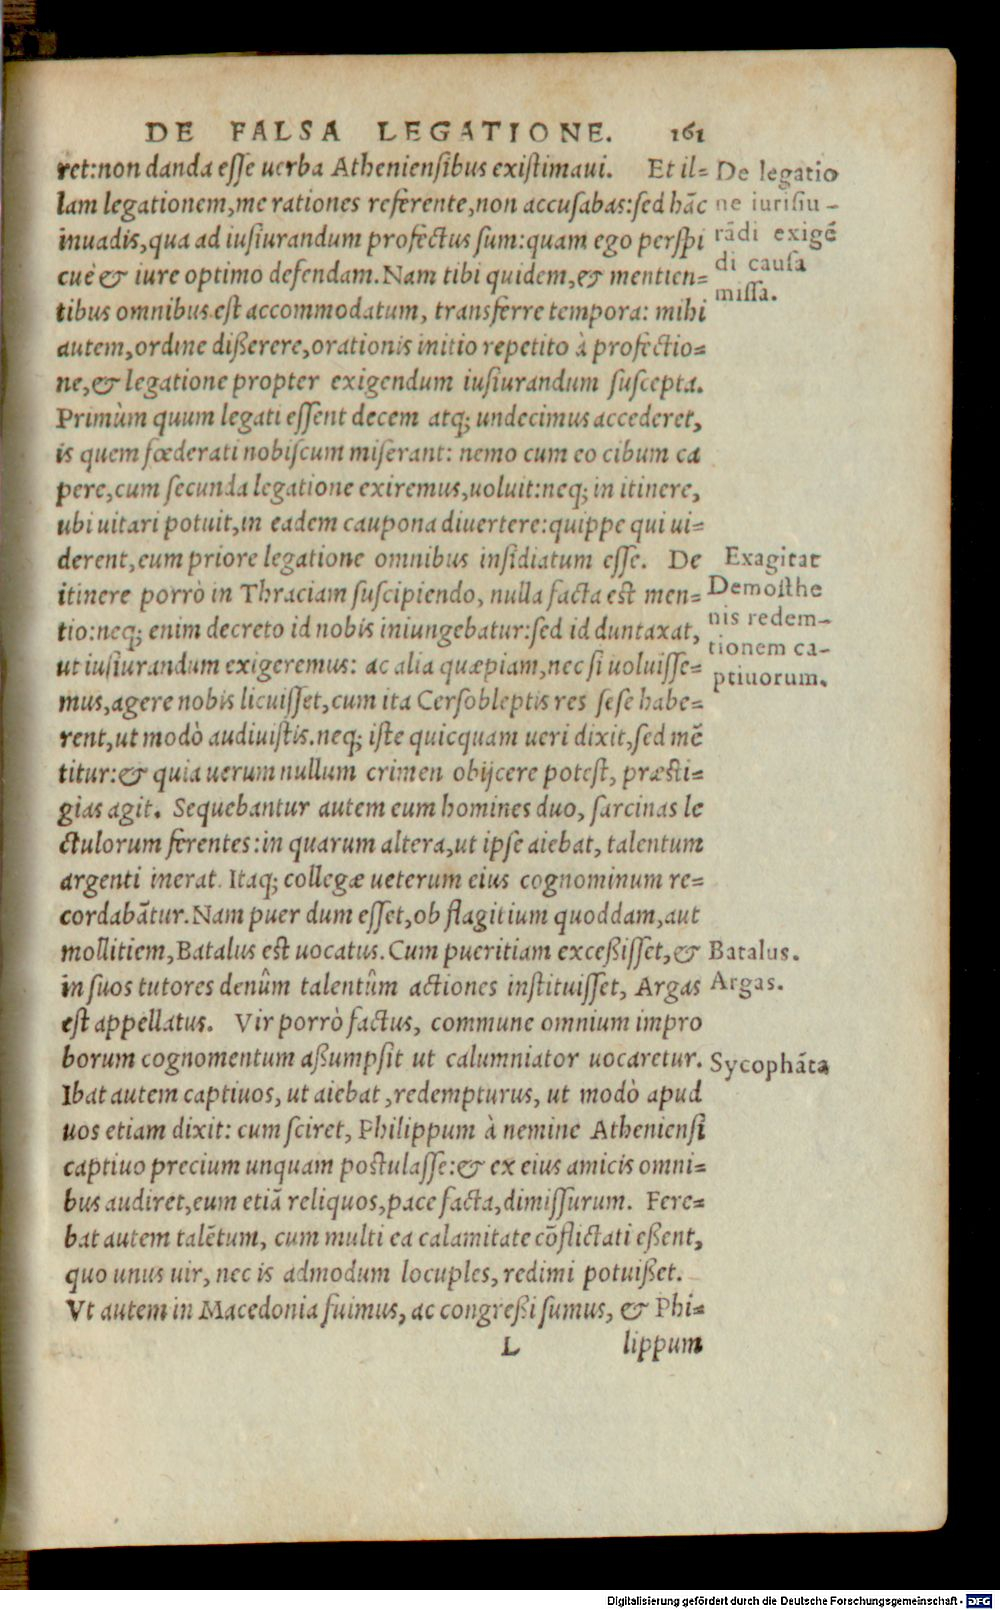 DE FALSA LEGATIONE. 161
ret: non danda esse uerba Atheniensibus existimaui. Et il=
lam legationem, me rationes referente, non accusabas: sed hãc
inuadis, qua ad iusiurandum profectus sum: quam ego perspi
cuè & iure optimo defendam. Nam tibi quidem, & mentien=
tibus omnibus est accommodatum, transferre tempora: mihi
autem, ordine dißerere, orationis initio repetito à profectio=
ne, & legatione propter exigendum iusiurandum suscepta.
Primùm quum legati essent decem atq; undecimus accederet,
is quem fœderati nobiscum miserant: nemo cum eo cibum ca
pere, cum secunda legatione exiremus, uoluit: neq; in itinere,
ubi uitari potuit, in eadem caupona diuertere: quippe qui ui=
derent, eum priore legatione omnibus insidiatum esse. De
itinere porrò in Thraciam suscipiendo, nulla facta est men=
tio: neq; enim decreto id nobis iniungebatur: sed id duntaxat,
ut iusiurandum exigeremus: ac alia quæpiam, nec si uoluisse=
mus, agere nobis licuisset, cum ita Cersobleptis res sese habe=
rent, ut modò audiuistis. neq; iste quicquam ueri dixit, sed mẽ
titur: & quia uerum nullum crimen obijcere potest, præsti=
gias agit. Sequebantur autem eum homines duo, sarcinas le
ctulorum ferentes: in quarum altera, ut ipse aiebat, talentum
argenti inerat. Itaq; collegæ ueterum eius cognominum re=
cordabãtur. Nam puer dum esset, ob flagitium quoddam, aut
mollitiem, Batalus est uocatus. Cum pueritiam exceßisset, &
in suos tutores denûm talentûm actiones instituisset, Argas
est appellatus. Vir porrò factus, commune omnium impro
borum cognomentum aßumpsit ut calumniator uocaretur.
Ibat autem captiuos, ut aiebat, redempturus, ut modò apud
uos etiam dixit: cum sciret, Philippum à nemine Atheniensi
captiuo precium unquam postulasse: & ex eius amicis omni=
bus audiret, eum etiã reliquos, pace facta, dimissurum. Fere=
bat autem talẽtum, cum multi ea calamitate cõflictati eßent,
quo unus uir, nec is admodum locuples, redimi potuißet.
Vt autem in Macedonia fuimus, ac congreßi sumus, & Phi=
L lippum
De legatio
ne iurisiu-
rãdi exigẽ
di causa
missa.
Exagitat
Demosthe
nis redem-
tionem ca-
ptiuorum.
Batalus.
Argas.
Sycophãta
Digitalisierung gefördert durch die Deutsche Forschungsgemeinschaft - DFG